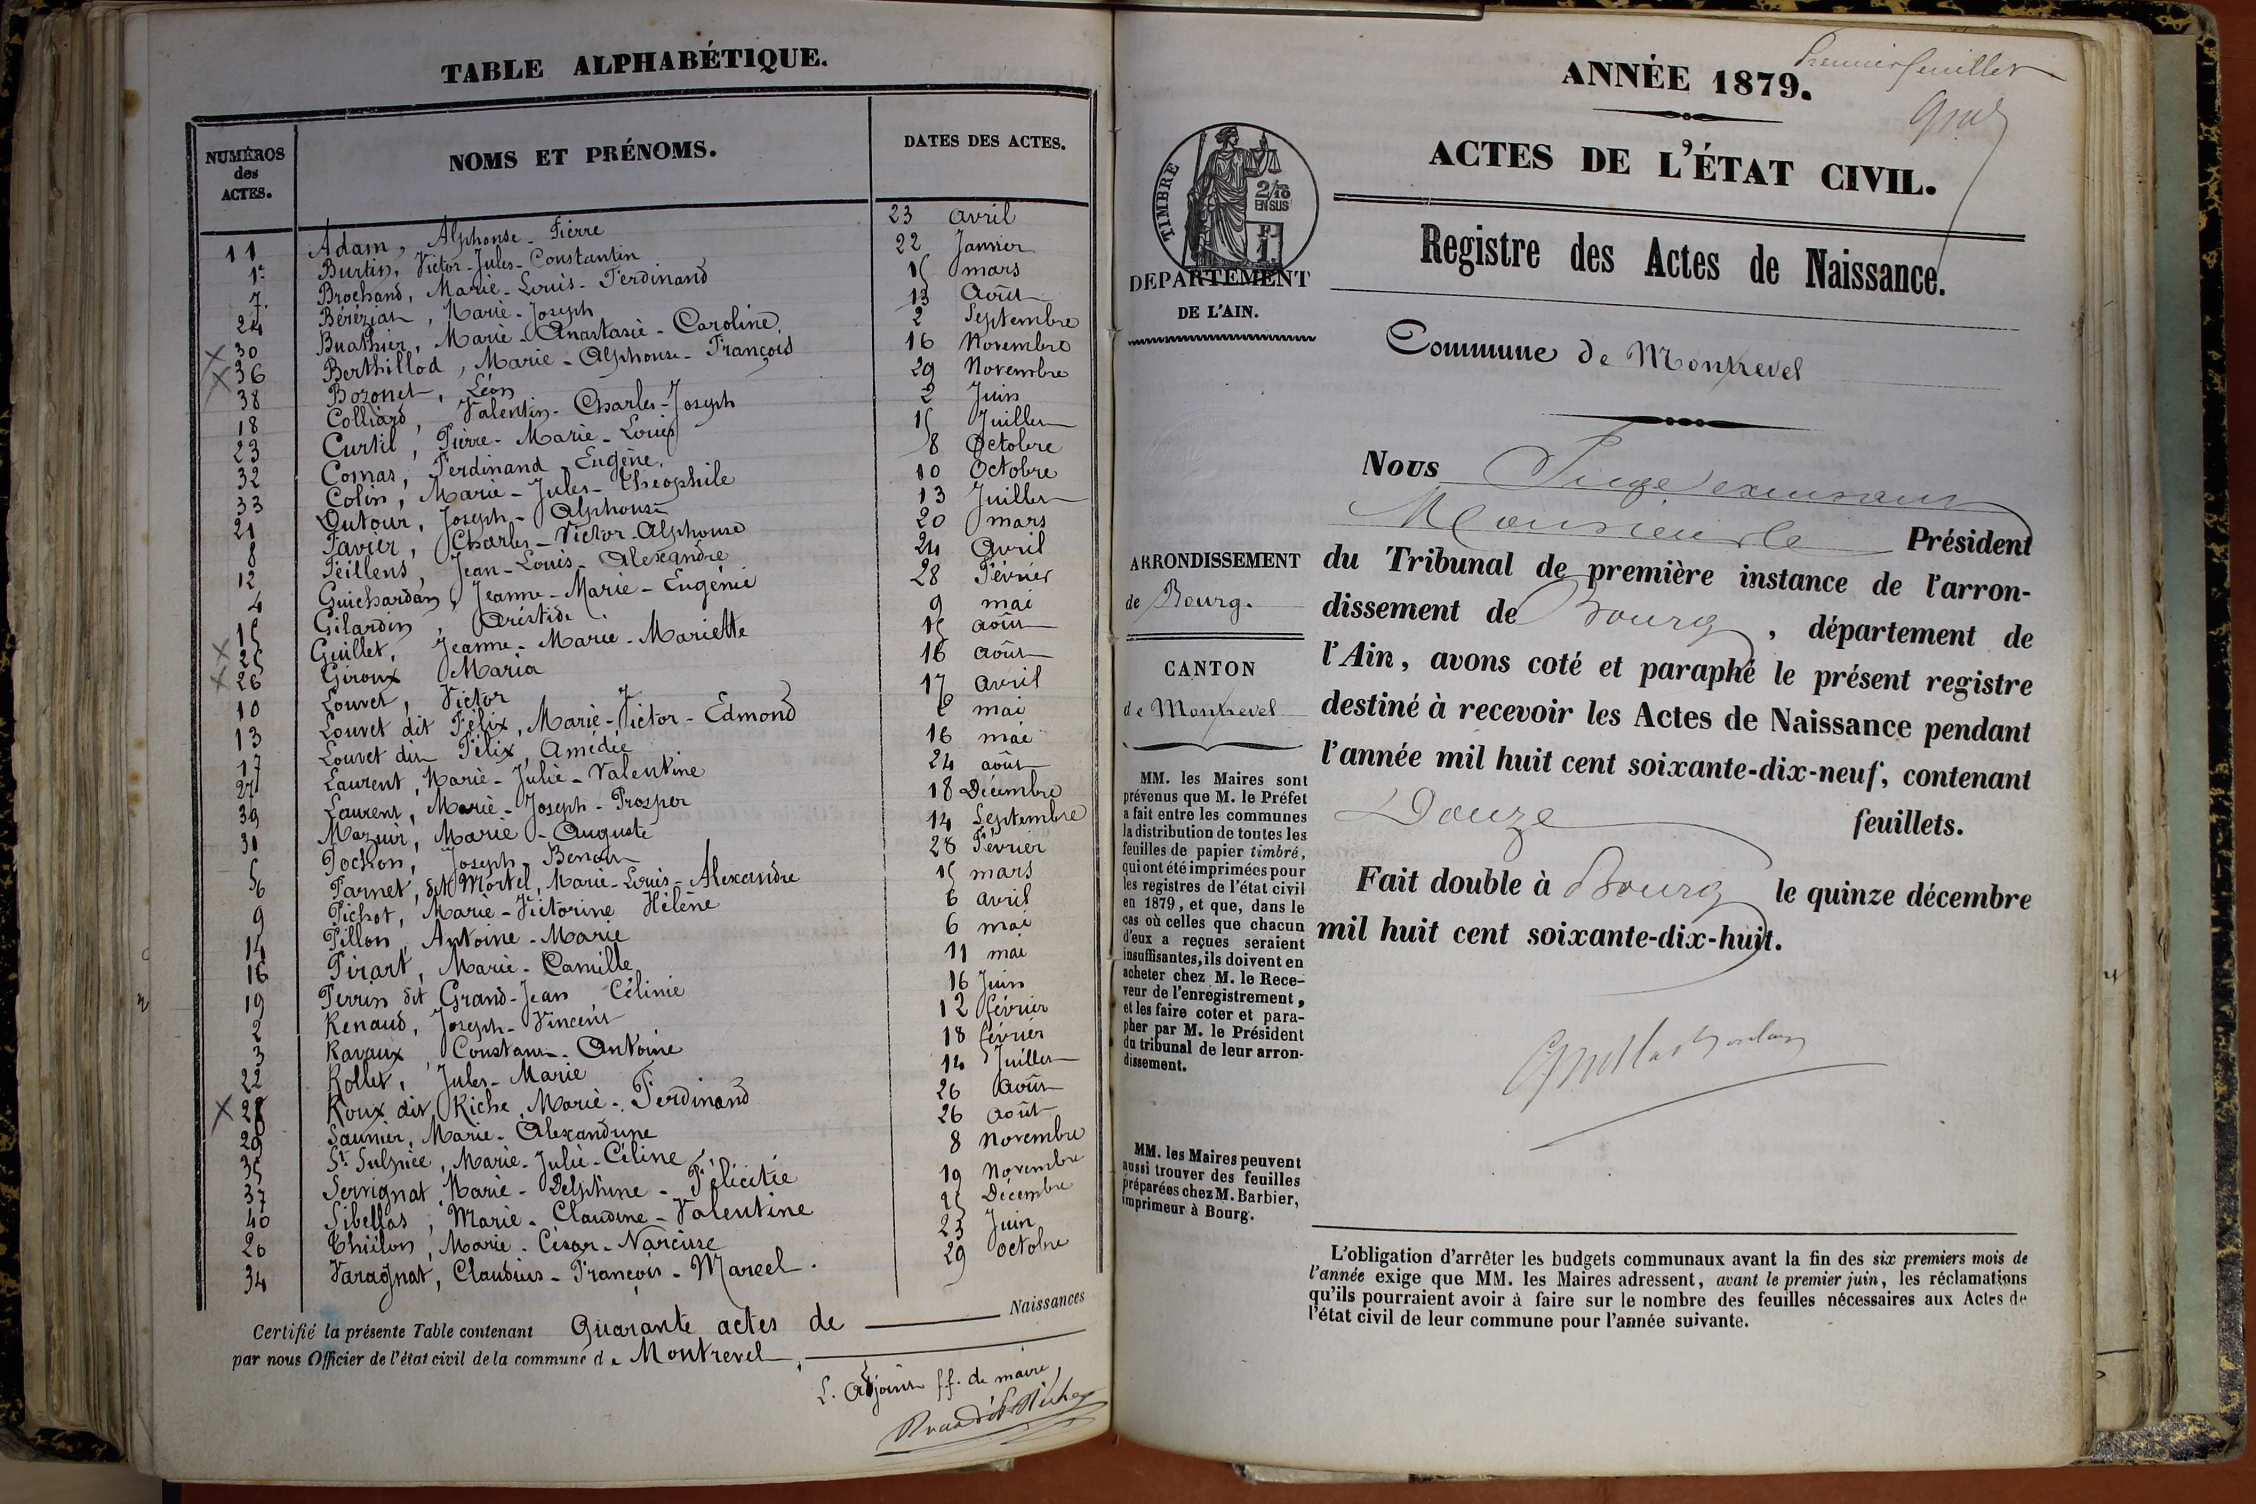 TABLE ALPHABÉTIQUE.
NUMÉROS des ACTES.
NOMS ET PRÉNOMS.
DATES DES ACTES.
11 Adam, Alphonse-Pierre 23 avril
1er Burtin, Victor-Jules-Constantin 22 Janvier
7. Brochand, Marie-Louis-Ferdinand 15 mars
24 Béréziat, Marie-Joseph 13 Août
30 Buathier, Marie-Anastasie-Caroline. 2 Septembre
36 Berthillod, Marie-Alphonse-François 16 Novembre
38 Bozonet, Léon 29 Novembre
18 Colliard, Valentin-Charles-Joseph 2 Juin
23 Curtil, Pierre-Marie-Louis 15 Juillet
32 Comas, Ferdinand-Eugène. 8 Octobre
33 Colin, Marie-Jules-Théophile 10 Octobre
21 Dutour, Joseph-Alphonse 13 Juillet
8 Favier, Charles-Victor-Alphonse 20 mars
12 Feillens, Jean-Louis-Alexandre 24 Avril
4 Guichardan, Jeanne-Marie-Eugénie 28 Février
15 Gilardin, Aristide. 9 mai
25 Guillet, Jeanne-Marie-Mariette 15 août
26 Giroux Maria 16 août
10 Louvet, Victor 17 avril
13 Louvet dit Félix, Marie-Victor-Edmond 2 mai
17 Louvet dit Félix, Amédée 16 mai
27 Laurent, Marie-Julie-Valentine 24 août
39 Laurent, Marie-Joseph-Prosper 18 Décembre
31 Mazuir, Marie-Auguste 14 Septembre
5 Pochon, Joseph-Benoit 28 Février
6 Parnet, dit Mortel, Marie-Louis-Alexandre 15 mars
9 Pichot, Marie-Victorine Hélène 6 avril
14 Pillon, Antoine-Marie 6 mai
16 Pirart, Marie-Camille 11 mai
19 Perrin dit Grand-Jean, Célinie 16 Juin
2 Renaud, Joseph-Vincent 12 février
3 Ravaux, Constant-Antoine 18 février
22 Rollet, Jules-Marie 14 Juillet
28 Roux dit Riche, Marie-Ferdinand 26 Août
29 Saunier, Marie-Alexandrine 26 août
35 St Sulpice, Marie-Julie-Céline 8 novembre
37 Servignat, Marie-Delphine-Félicitie 19 Novembre
40 Sibellas, Marie-Claudine-Valentine 25 Décembre
20 Thiélon, Marie-César-Narcisse 23 Juin
34 Varagnat, Claudius-François-Marcel. 29 octobre
Certifié la présente Table contenant Quarante actes de Naissances
par nous Officier de l'état civil de la commune de Montrevel,
L. adjoint ff. de maire,
Premier feuillet
ANNÉE 1879.
ACTES DE L'ÉTAT CIVIL.
TIMBRE
2/10 EN SUS
F. 1.
DEPARTEMENT
DE L'AIN.
Registre des Actes de Naissance.
Commune de Montrevel
Nous Juge excusant
Monsieur le Président
du Tribunal de première instance de l'arron-
dissement de Bourg, département de
l'Ain, avons coté et paraphé le présent registre
destiné à recevoir les Actes de Naissance pendant
l'année mil huit cent soixante-dix-neuf, contenant
Douze feuillets.
Fait double à Bourg le quinze décembre
mil huit cent soixante-dix-huit.
ARRONDISSEMENT
de Bourg.
CANTON
de Montrevel
MM. les Maires sont
prévenus que M. le Préfet
a fait entre les communes
la distribution de toutes les
feuilles de papier timbré,
qui ont été imprimées pour
les registres de l'état civil
en 1879, et que, dans le
cas où celles que chacun
d'eux a reçues seraient
insuffisantes, ils doivent en
acheter chez M. le Rece-
veur de l'enregistrement,
et les faire coter et para-
pher par M. le Président
du tribunal de leur arron-
dissement.
MM. les Maires peuvent
aussi trouver des feuilles
préparées chez M. Barbier,
imprimeur à Bourg.
L'obligation d'arrêter les budgets communaux avant la fin des six premiers mois de
l'année exige que MM. les Maires adressent, avant le premier juin, les réclamations
qu'ils pourraient avoir à faire sur le nombre des feuilles nécessaires aux Actes de
l'état civil de leur commune pour l'année suivante.